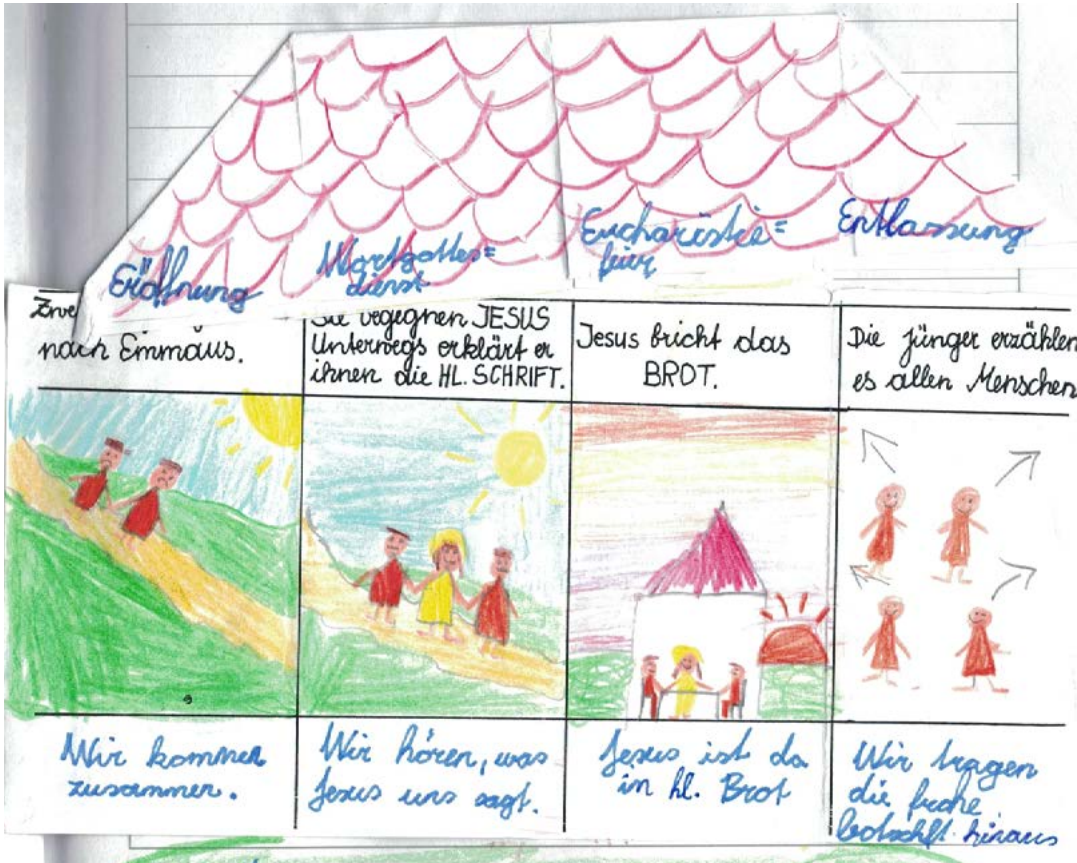 Eröffnung
Wortgottes=
dienst
Eucharistie=
feier
Entlassung
nach Emmaus.
Sie begegnen JESUS
Unterwegs erklärt er
ihnen die HL. SCHRIFT.
Jesus bricht das
BROT.
Die jünger erzählen
es allen Menschen
Wir kommen
zusammen.
Wir hören, was
Jesus uns sagt.
Jesus ist da
in hl. Brot
Wir tragen
die frohe
botschft hinaus